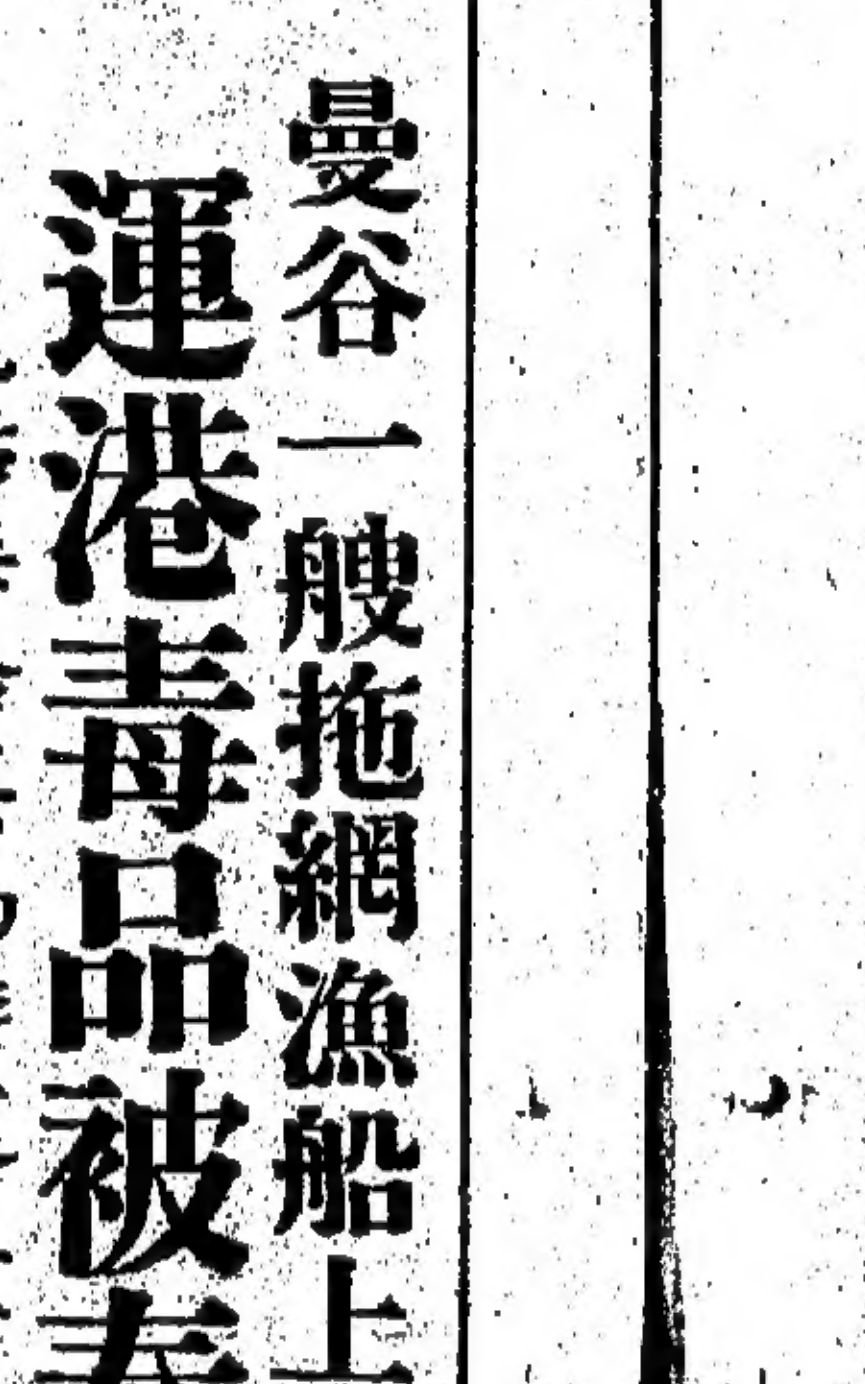 曼谷一艘拖網漁船上
運港毒品被